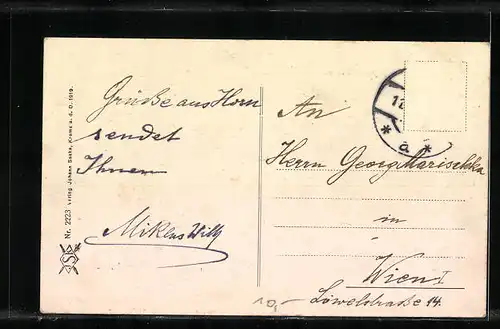 Grüße aus Horn
sendet
Ihnen
Mikens Willy
An
Herrn Georg Marischka
in
Wien I
Löwelstraße 14.
10,-
Nr. 2223 Verlag Johann Saska, Krems a. d. D. 1919.
* a *